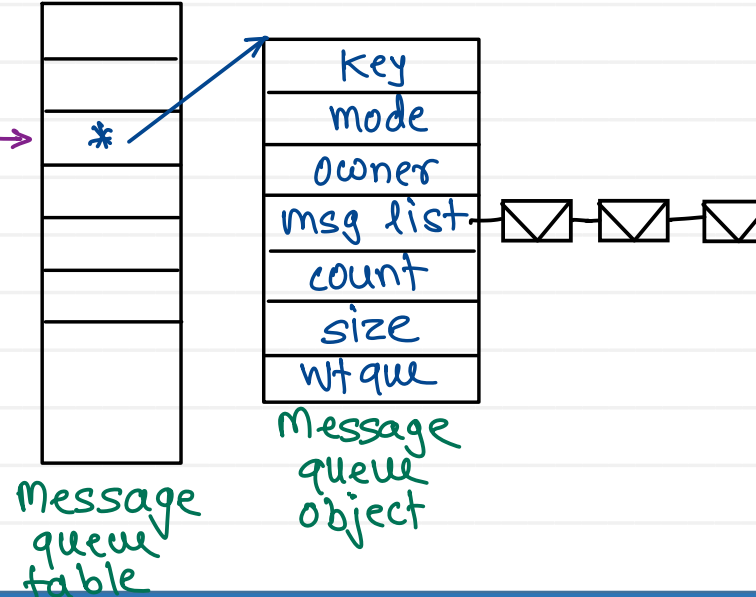 *
Key
mode
owner
msg list
count
size
wt que
Message
queue
object
Message
queue
table